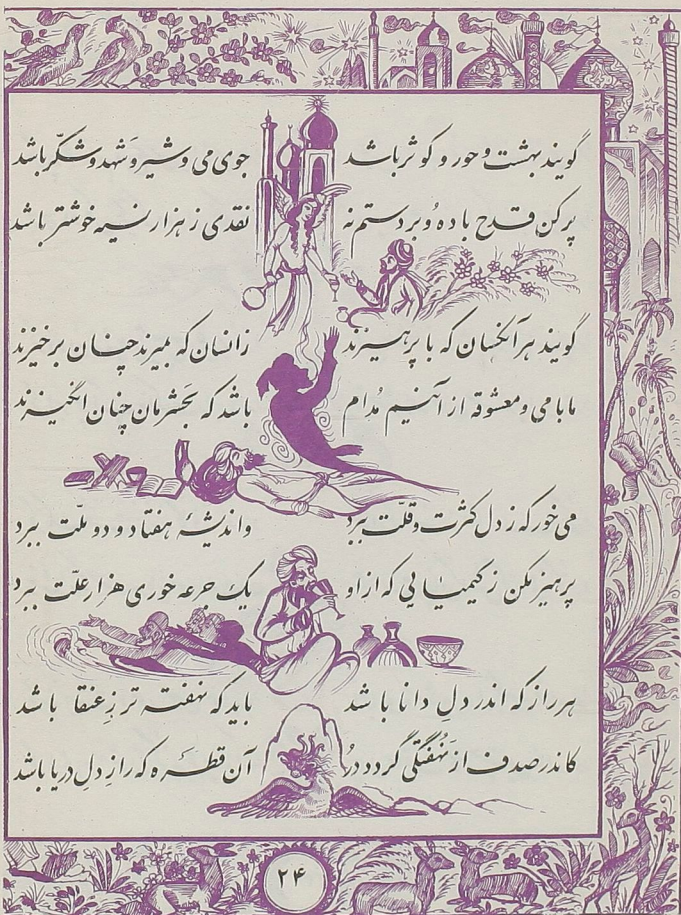 گویند بهشت و حور و کوثر باشد جوی می و شیر و شهد و شکّر باشد
پر کن قدح باده و بر دستم نه نقدی ز هزار نسیه خوشتر باشد
گویند هر آنکسان که با پرهیزند زانسان که بمیرند چنان برخیزند
ما با می و معشوقه از آنیم مُدام باشد که بحَشرمان چنان انگیزند
می خور که ز دل کثرت و قلّت ببرد و اندیشهٔ هفتاد و دو ملّت ببرد
پرهیز مکن ز کیمیایی که از او یک جرعه خوری هزار علّت ببرد
هر راز که اندر دلِ دانا باشد باید که نهفته تر ز عنقا باشد
کاندر صدف از نهُفتگی گردد دُر آن قطرهٔ که رازِ دلِ دریا باشد
۲۴